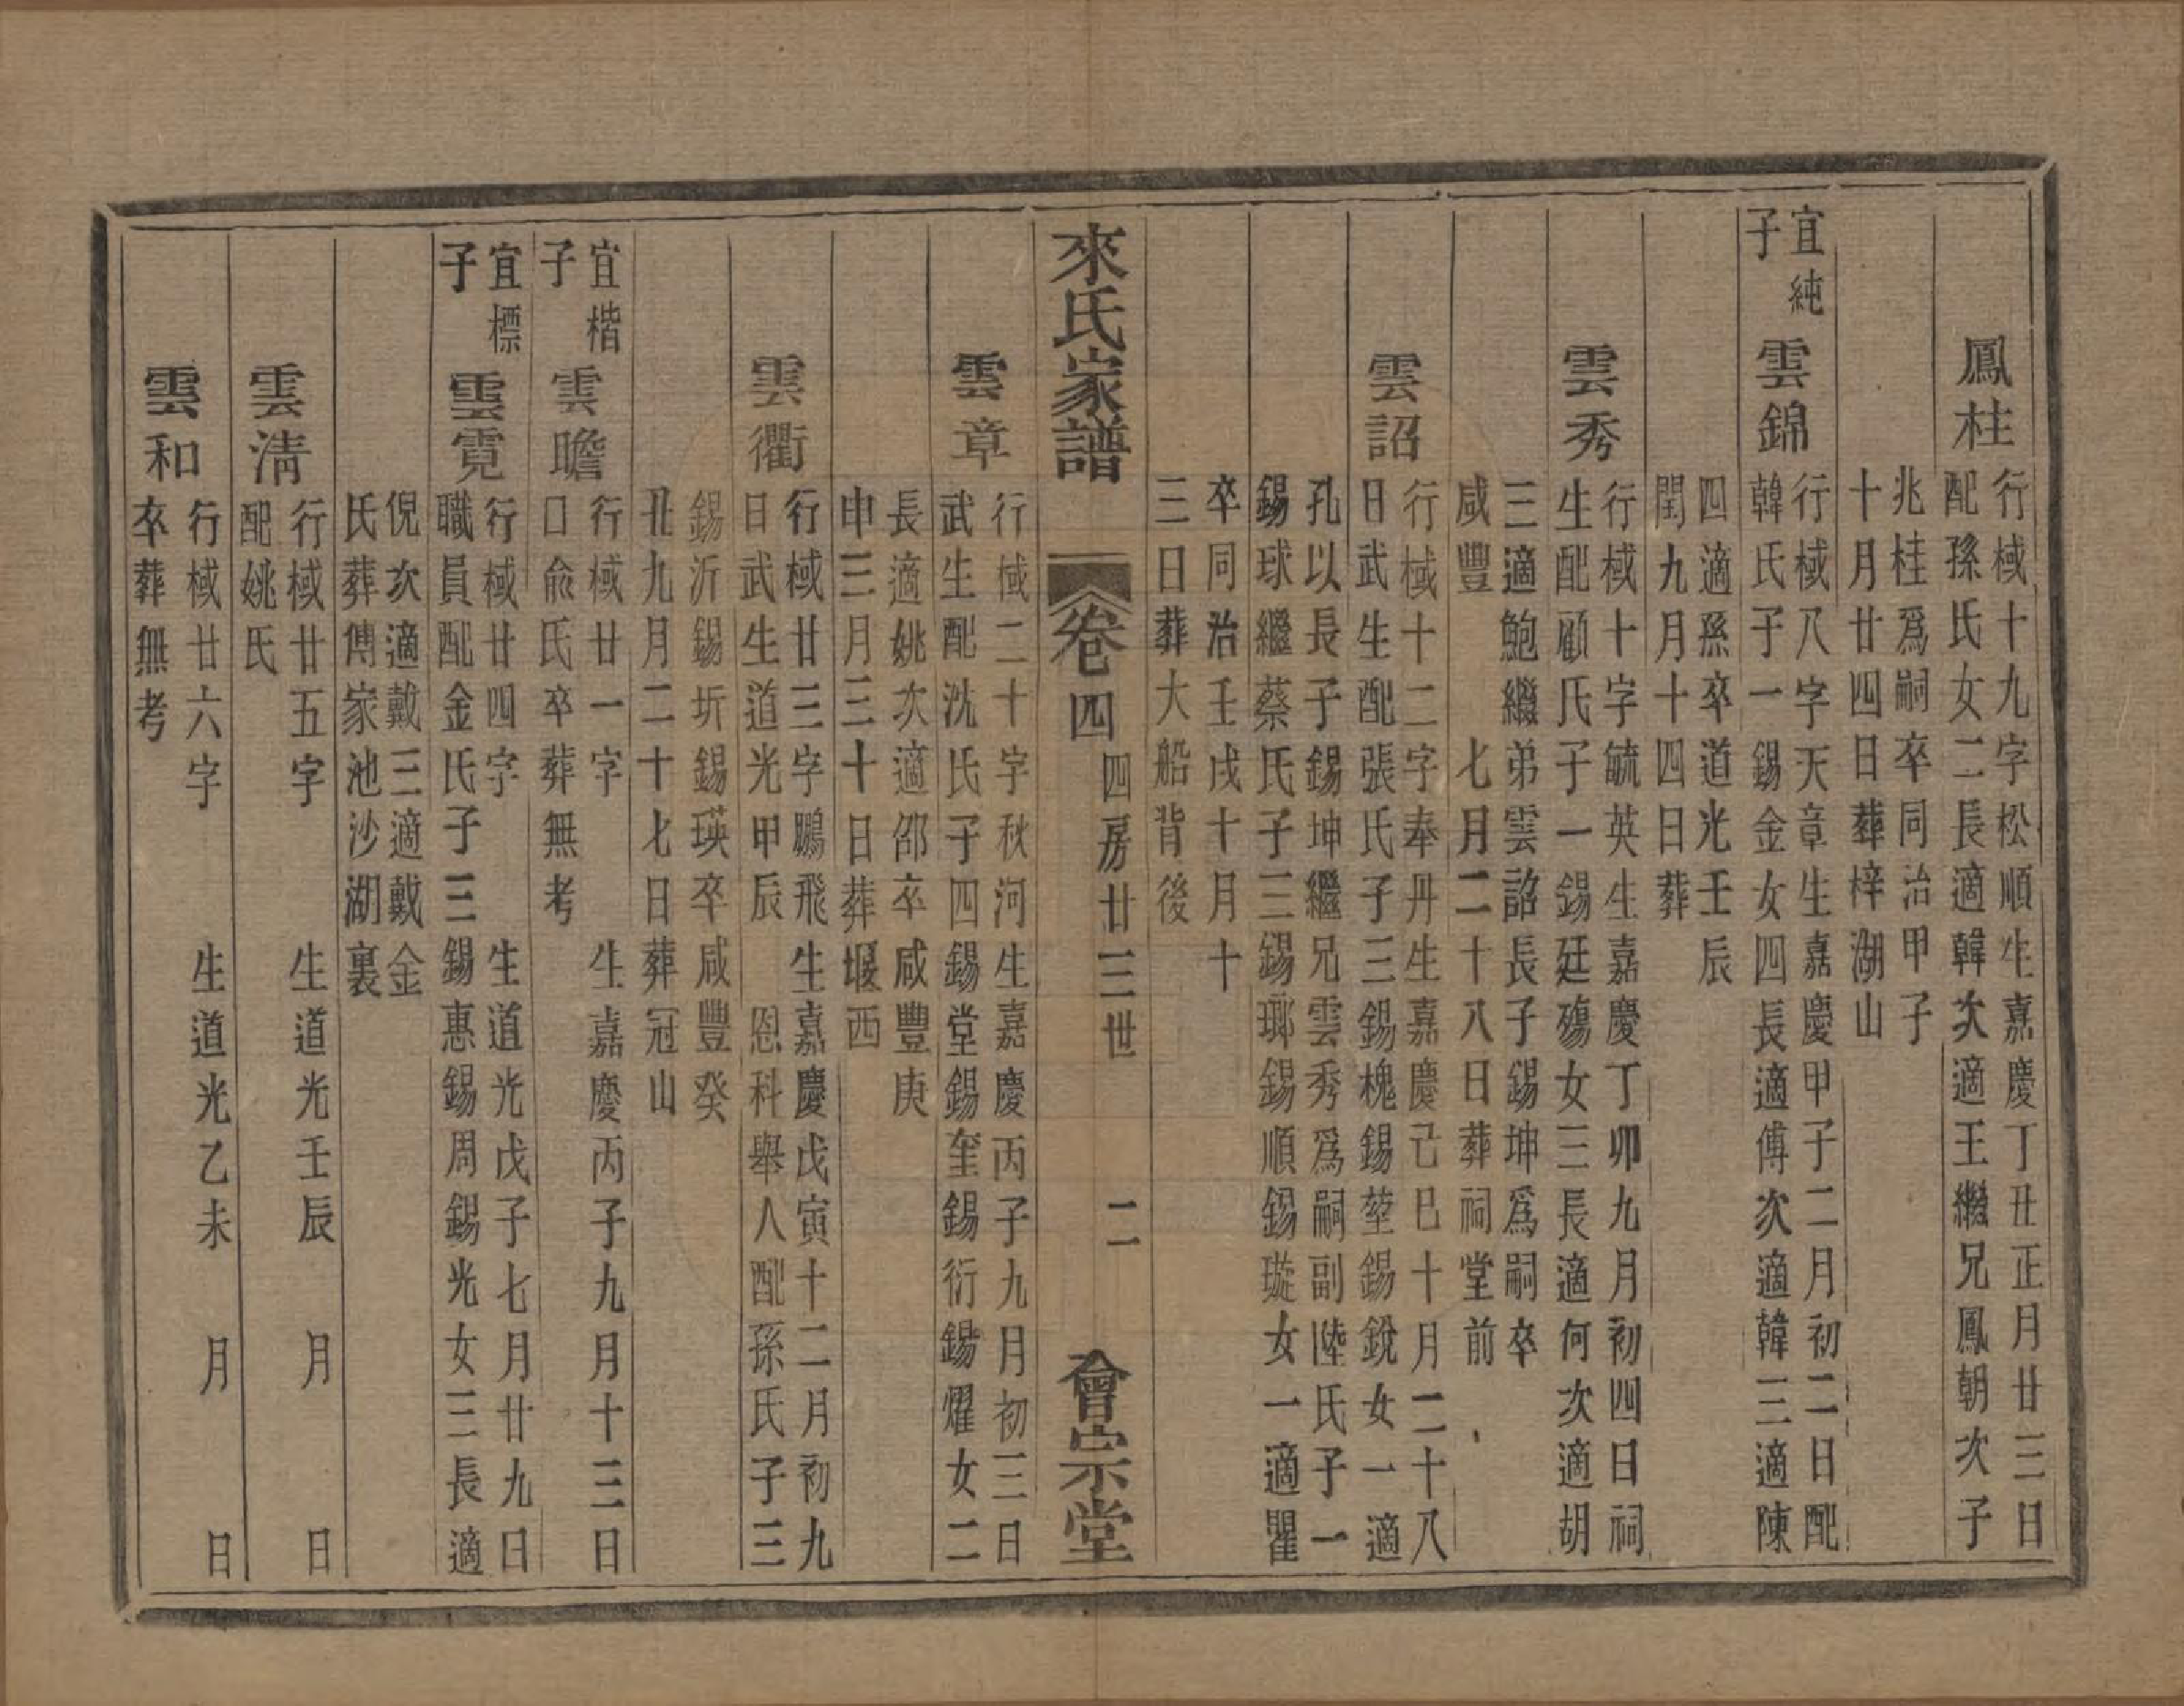 鳳柱
行棫十九字松順生嘉慶丁丑正月廿三日
配孫氏女二長適韓次適王繼兄鳳朝次子
兆桂爲嗣卒同治甲子
十月廿四日葬梓湖山
宜純
子
雲錦
行棫八字天章生嘉慶甲子二月初二日配
韓氏子一錫金女四長適傅次適韓三適陳
四適孫卒道光壬辰
閏九月十四日葬
雲秀
行棫十字毓英生嘉慶丁卯九月初四日祠
生配顧氏子一錫廷殤女三長適何次適胡
三適鮑繼弟雲詔長子錫坤爲嗣卒
咸豐　七月二十八日葬祠堂前
雲詔
行棫十二字奉丹生嘉慶己巳十月二十八
日武生配張氏子三錫槐錫堃錫銳女一適
孔以長子錫坤繼兄雲秀爲嗣副陸氏子一
錫球繼蔡氏子三錫瑯錫順錫璇女一適瞿
卒同治壬戌十月十
三日葬大船背後
來氏家譜
卷四
四房廿三世
二
會宗堂
雲章
行棫二十字秋河生嘉慶丙子九月初三日
武生配沈氏子四錫堂錫奎錫衍錫燿女二
長適姚次適邵卒咸豐庚
申三月三十日葬堰西
雲衢
行棫廿三字鵬飛生嘉慶戊寅十二月初九
日武生道光甲辰　恩科舉人配孫氏子三
錫沂錫圻錫瑛卒咸豐癸
丑九月二十七日葬冠山
宜楷
子
雲瞻
行棫廿一字　生嘉慶丙子九月十三日
口俞氏卒葬無考
宜標
子
雲霓
行棫廿四字　生道光戊子七月廿九日
職員配金氏子三錫惠錫周錫光女三長適
倪次適戴三適戴金
氏葬傅家池沙湖裏
雲淸
行棫廿五字　生道光壬辰　月　日
配姚氏
雲和
行棫廿六字　生道光乙未　月　日
卒葬無考